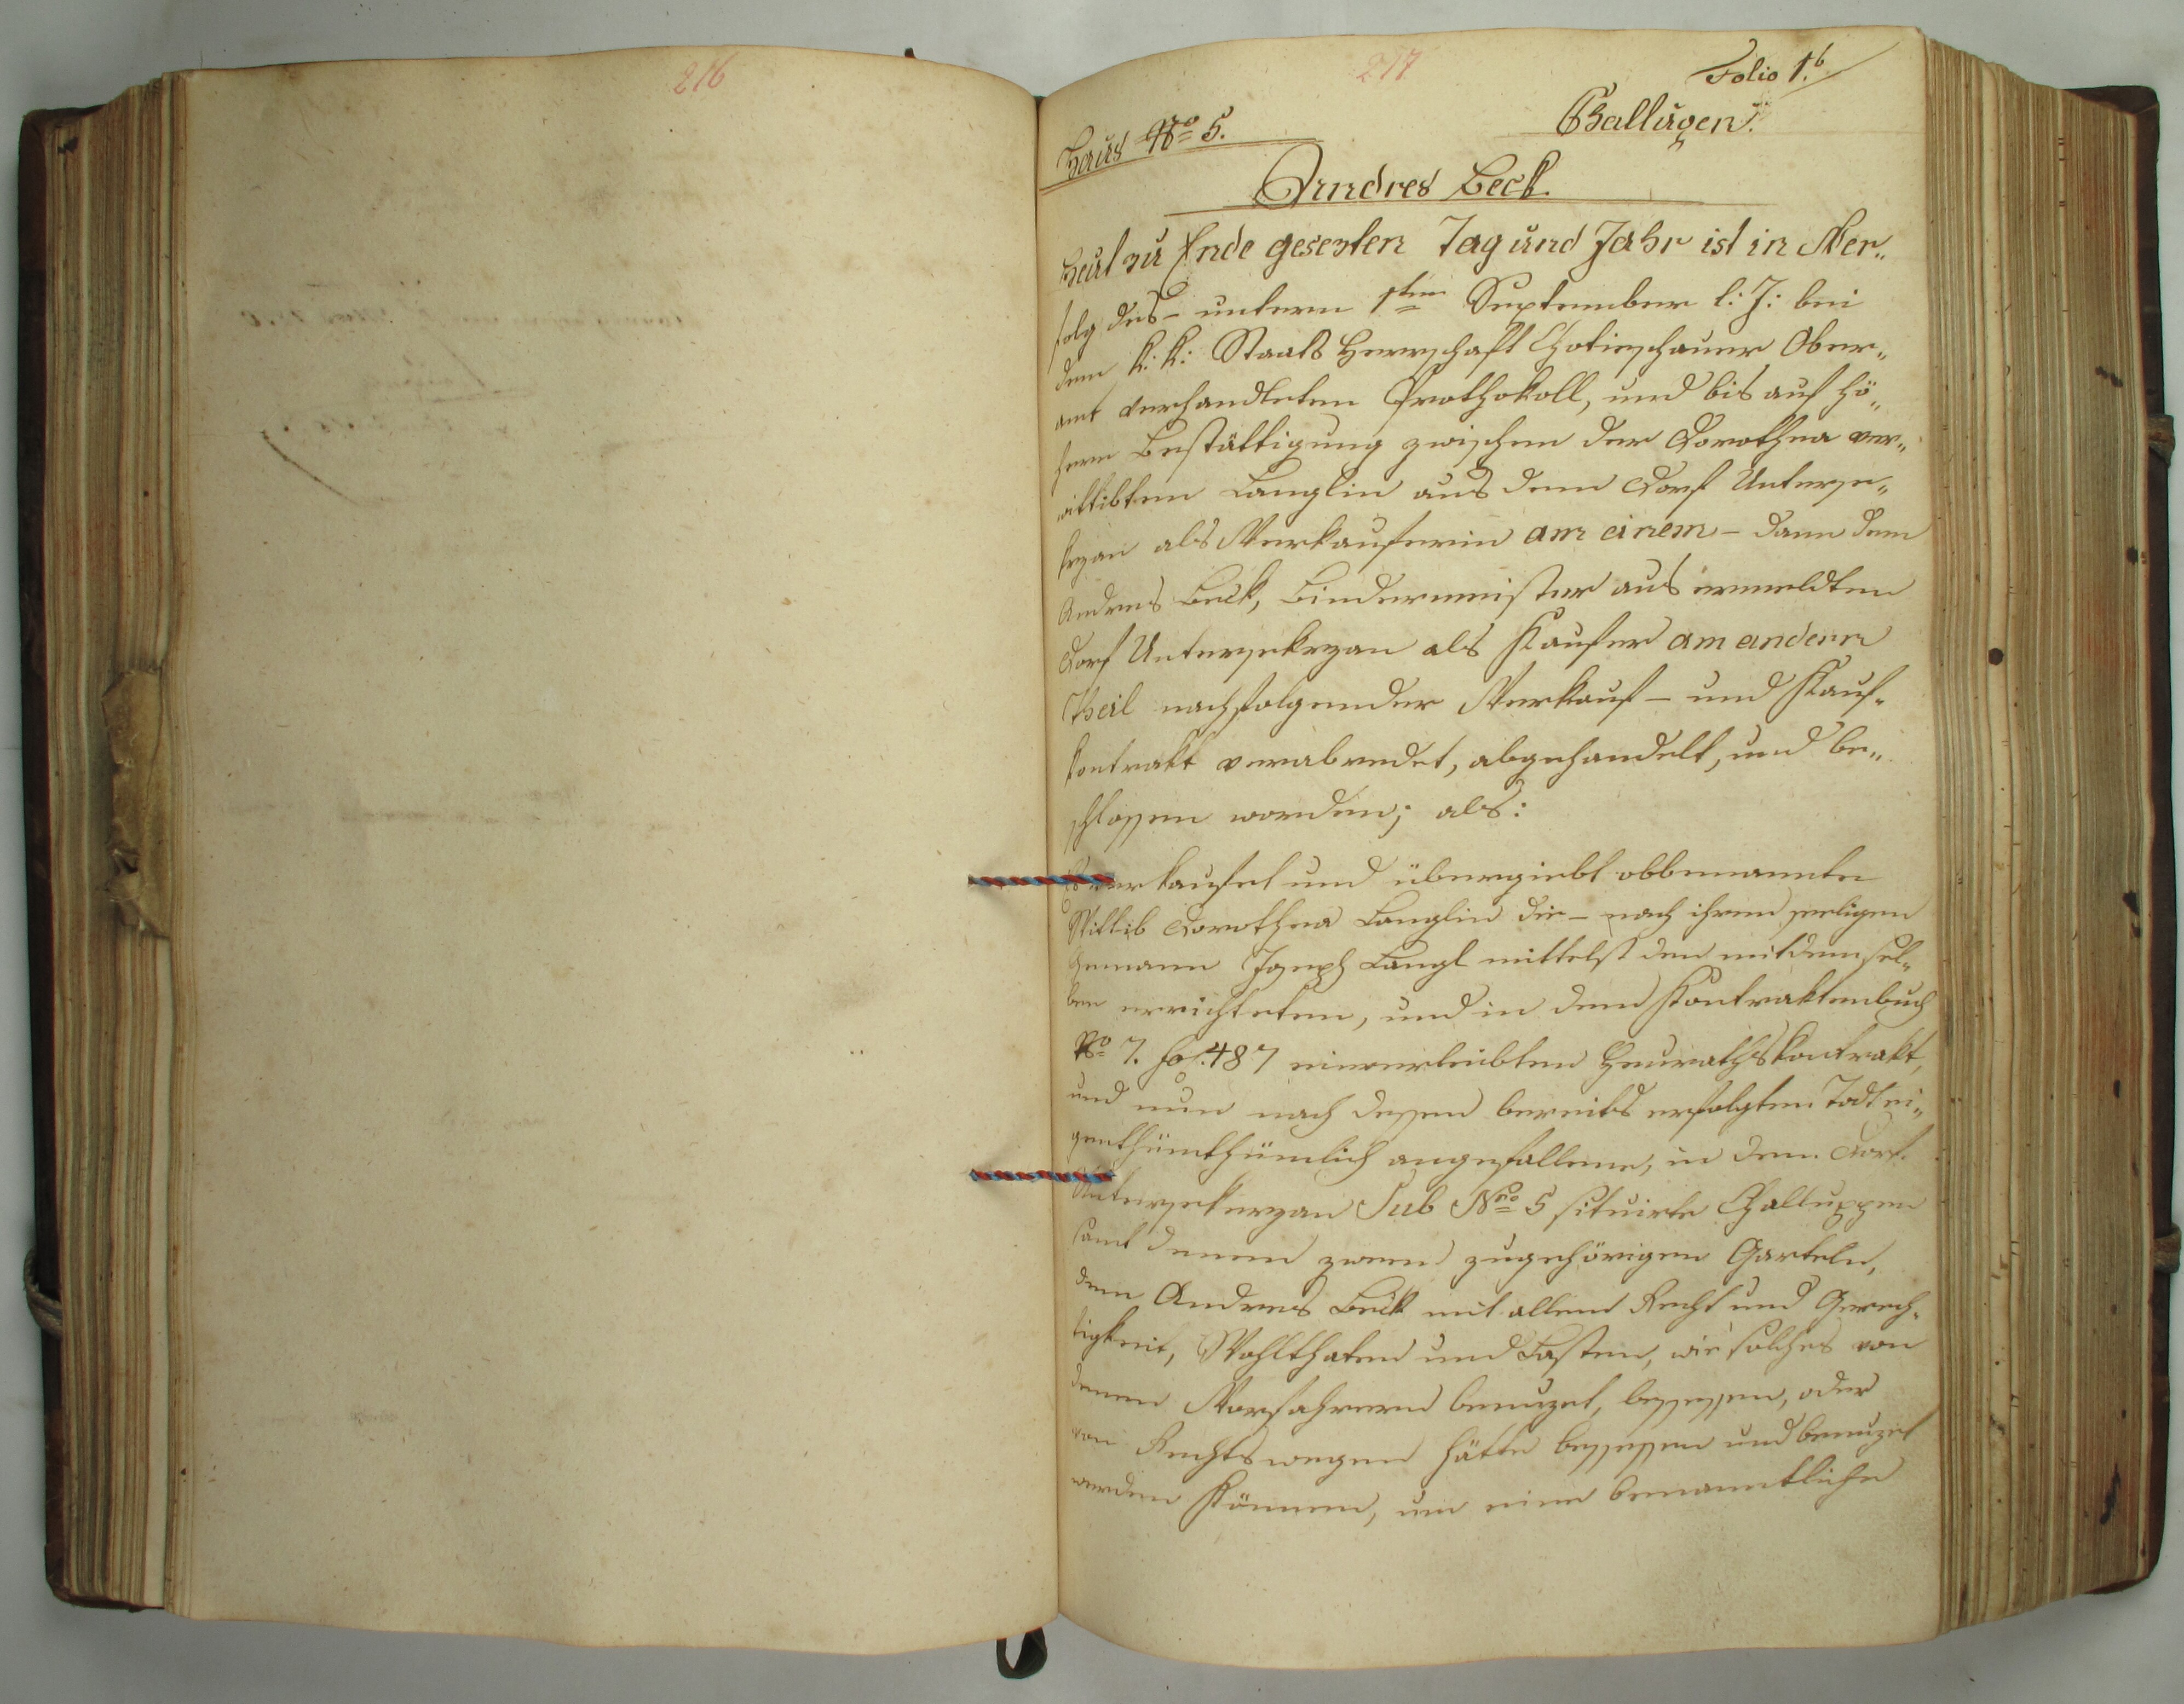 216
217
Folio 1.b
Haus No 5.
Challupen.
Andres Beck.
Heut zu Ende gesezten Tag und Jahr ist in Ver„
folg des – unterm 1ten September l: J: bei
dem k: k: Staats Herrschaft Chotieschauer Ober„
amt verhandleten Prothokoll, und bis auf hö„
here Bestättigung zwischen der Dorothea ver„
wittibten Langlin aus dem Dorf Unterse„
krzan als Verkauferin am einem – dann dem
Andres Beck, Bindermeister aus ermeldten
Dorf Untersekrzan als Kaufer am andern
Theil nachfolgender Verkauf – und Kauf„
kontrakt verabredet, abgehandelt, und be„
schlossen worden; als:
Es verkaufet und übergiebt obbenannte
Wittib Dorothea Langlin die – nach ihrem seeligen
Ehemann Joseph Langl mittelst den mit demsel„
ben errichteten, und in dem Kontraktenbuch
No 7. fol. 487 einverleibten Heurathskontrakt,
und nun nach dessen bereits erfolgten Todt ei„
genthümthümlich angefallene, in dem Dorf
Untersekerzan Sub Nro 5 situirte Challuppen
samt denen zween zugehörigen Garteln,
dem Andres Beck mit allem Recht und Gerech„
tigkeit, Wohlthaten und Lasten, wie solches von
denen Vorfahrern benuzet, besessen, oder
von Rechtswegen hätte besessen und benuzet
werden können, um eine benanntliche